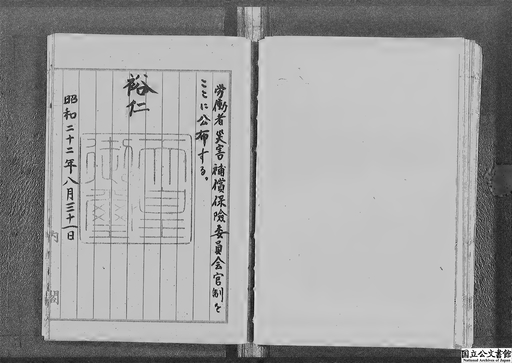 労働者災害補償保険委員会官制を
ここに公布する。
裕仁
天皇御璽
昭和二十二年八月三十一日
内閣
国立公文書館
National Archives of Japan